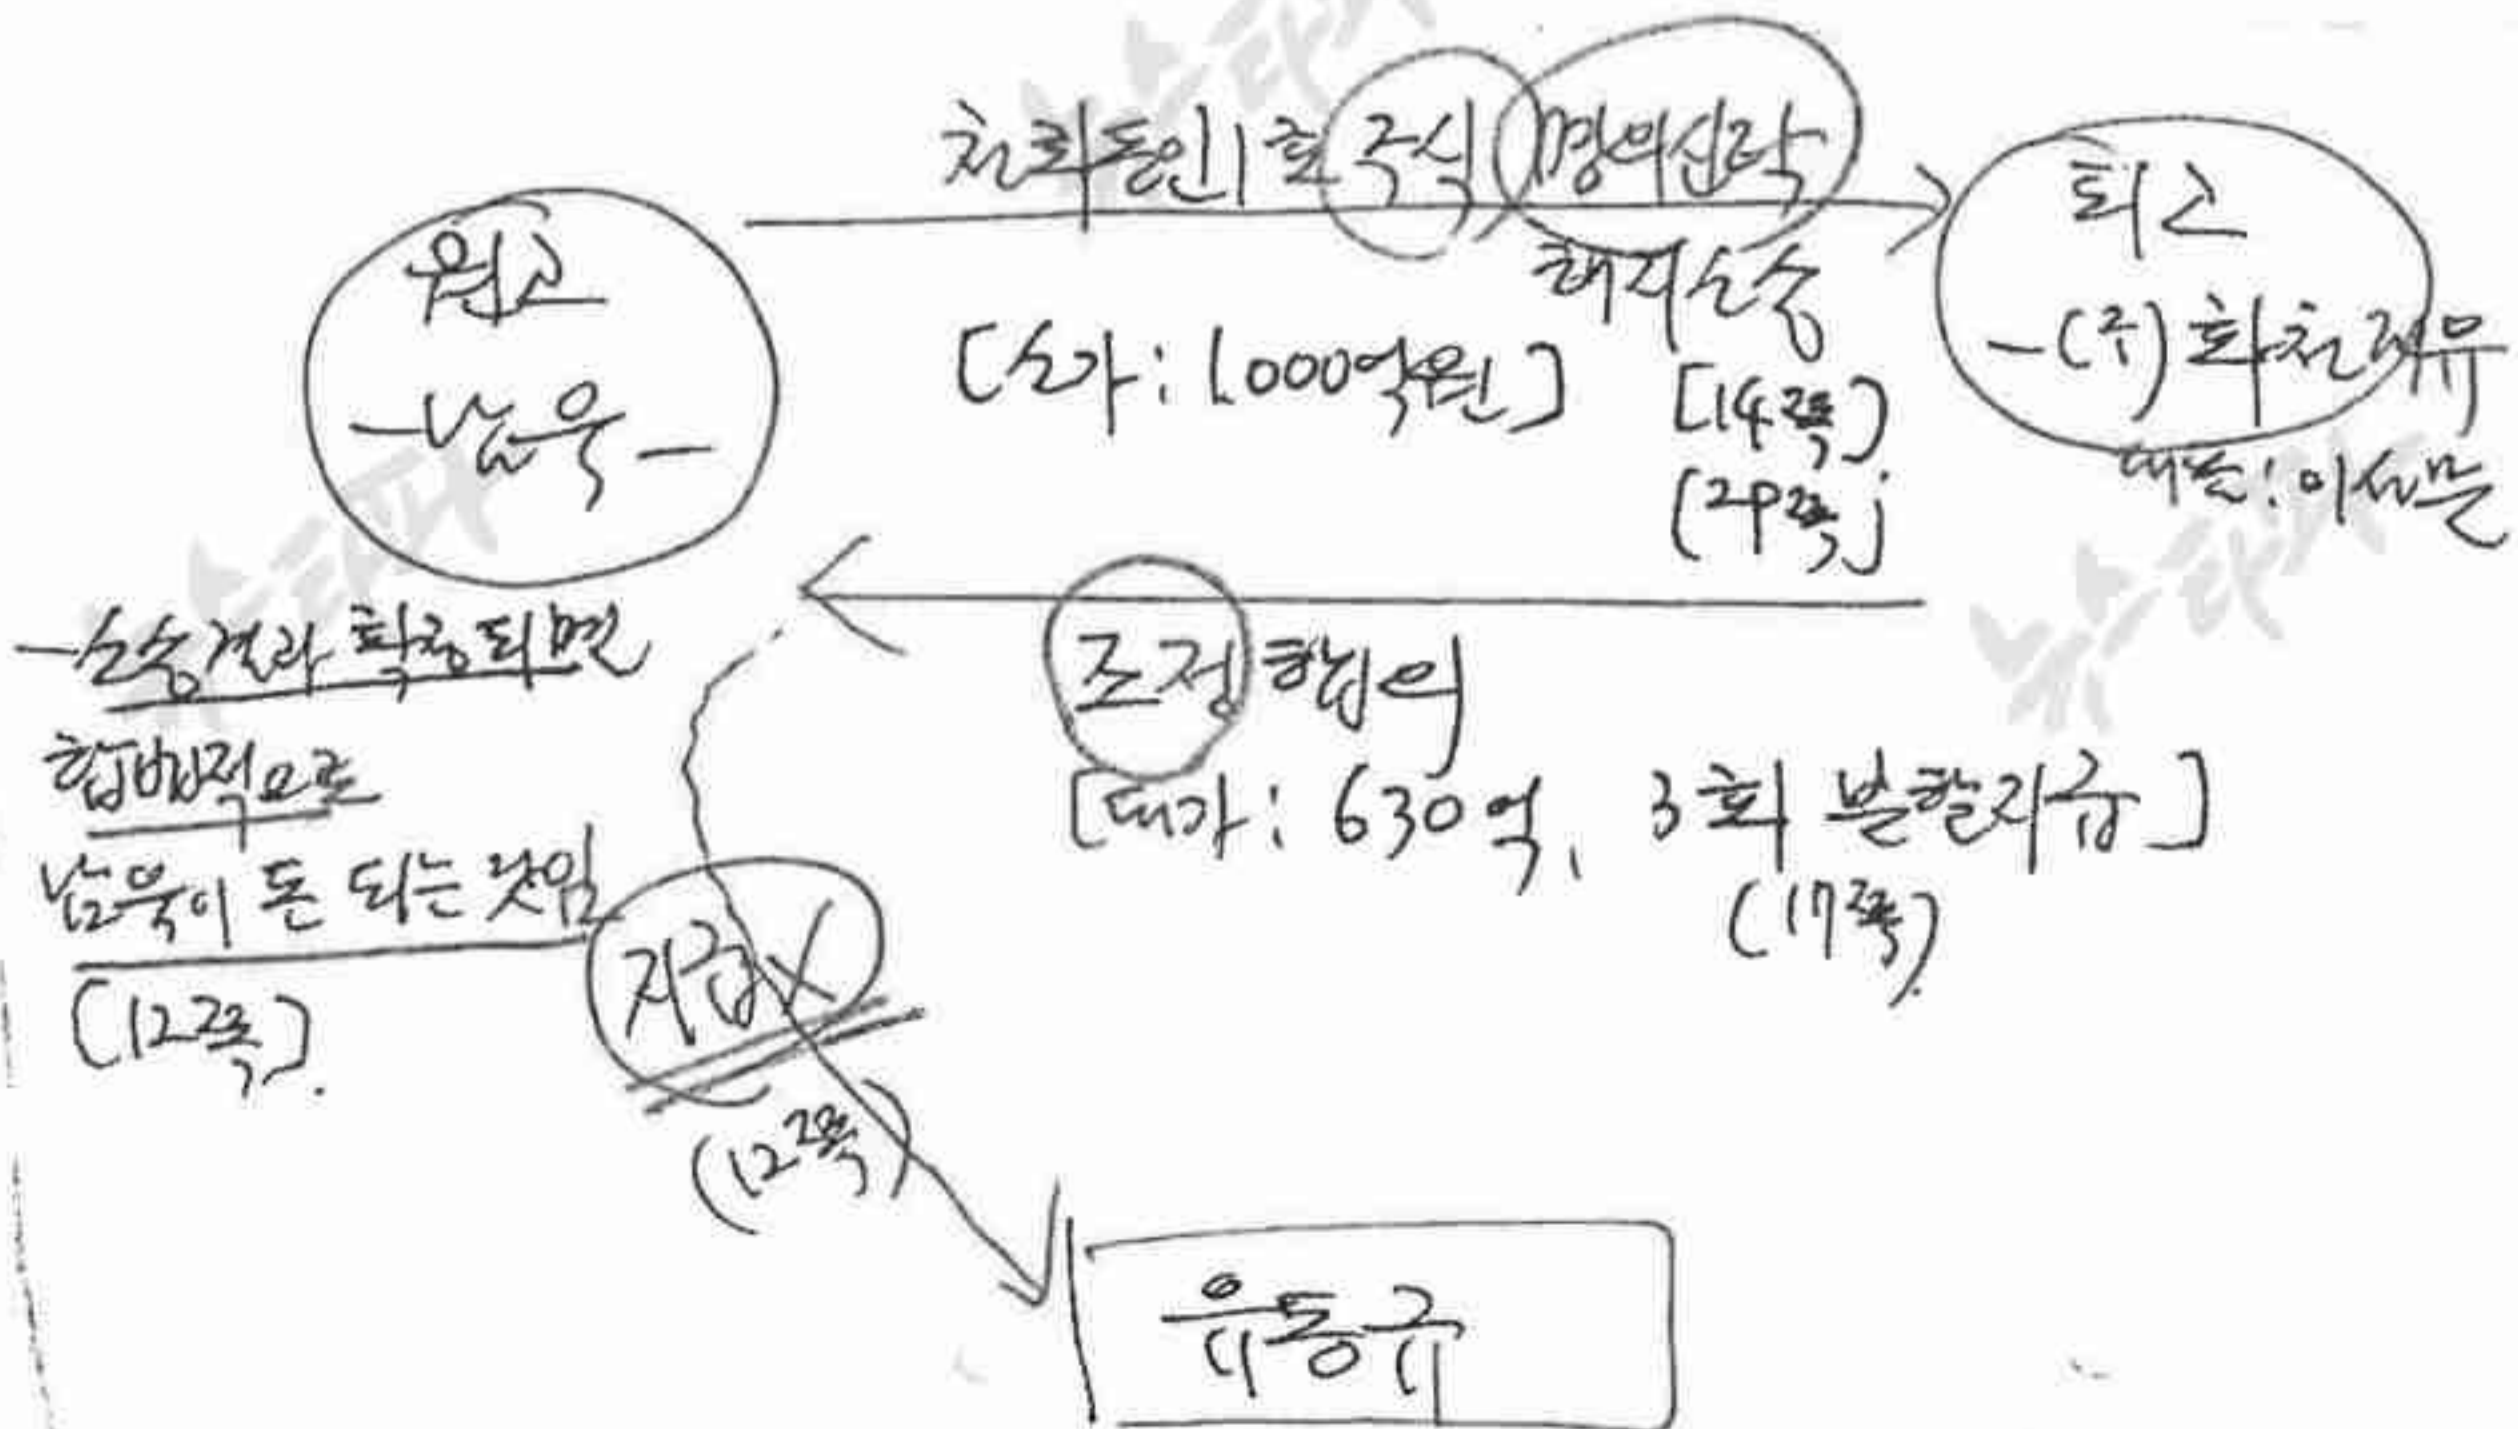 천화동인1호 주식 명의신탁
해지소송
[소가: 1,000억원]
[14쪽]
[29쪽]
원고
-남욱-
피고
-(주)화천대유
대표: 이성문
조정합의
[대가: 630억, 3회 분할지급]
(17쪽)
-소송결과 확정되면
합법적으로
남욱이 돈 되는 것임
[12쪽].
지급X
(12쪽)
유동규
뉴스타파
뉴스타파
뉴스타파